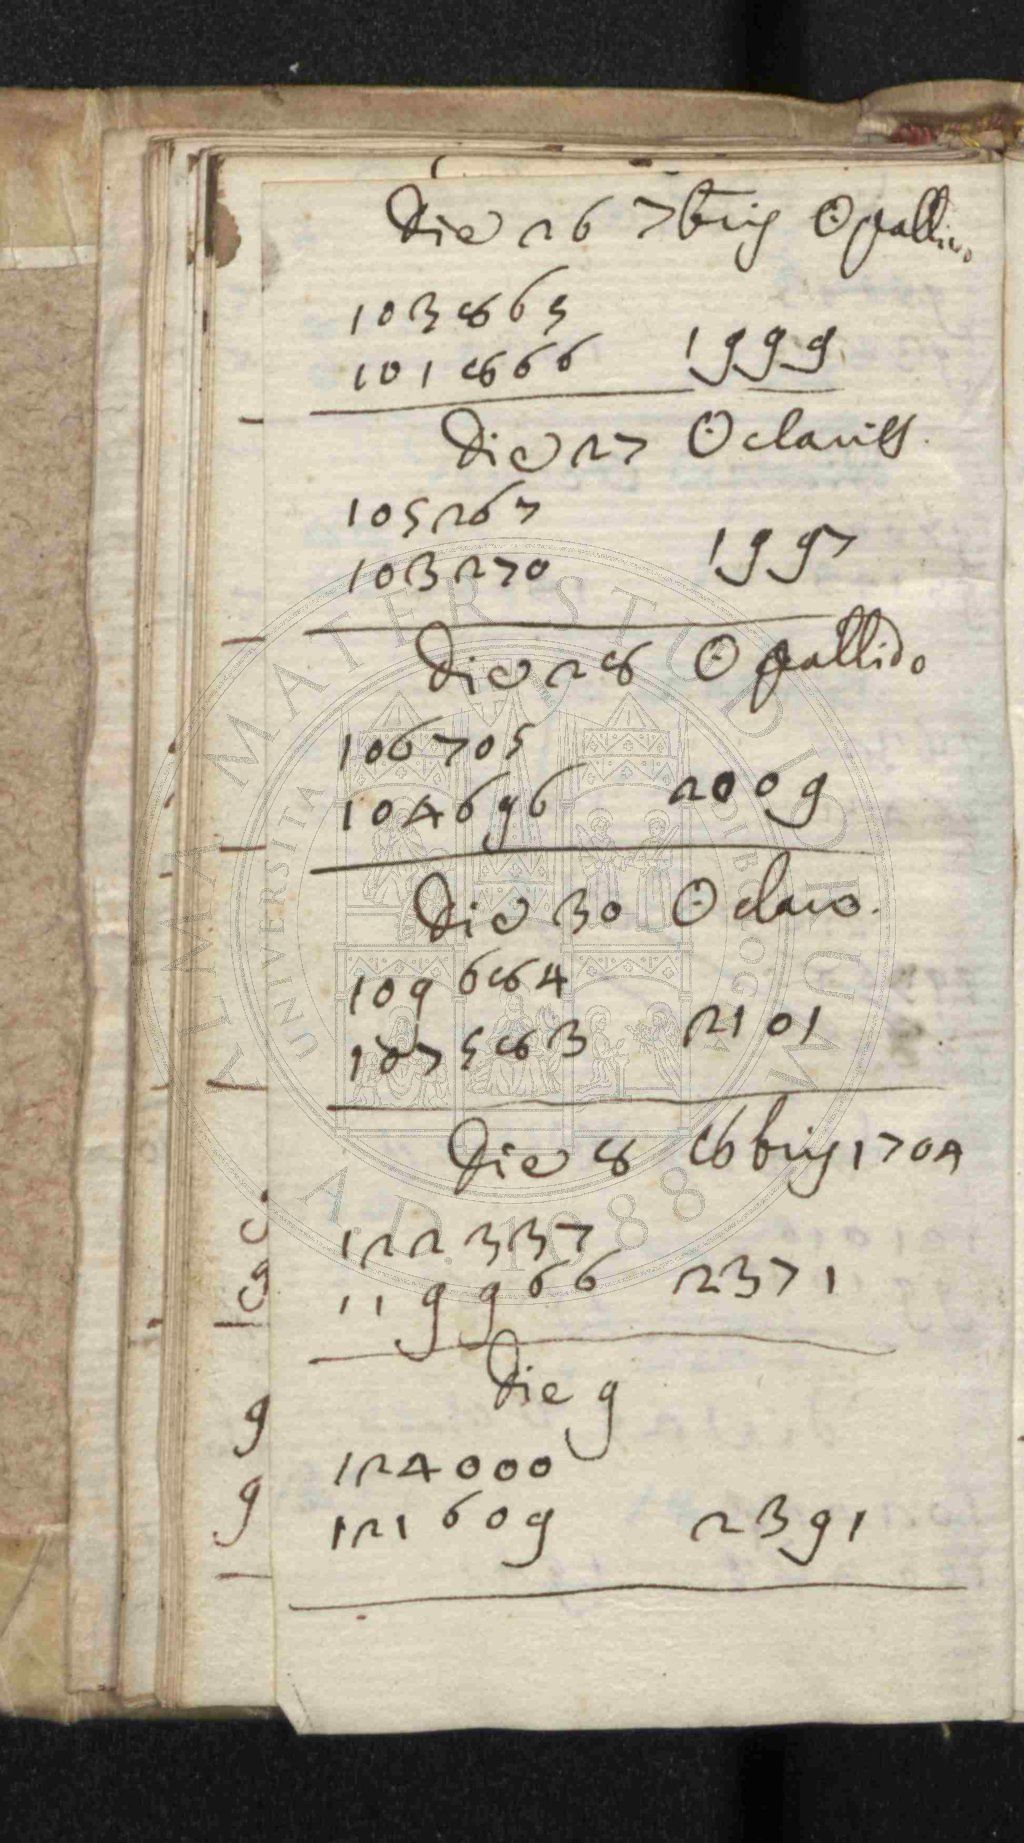 Die 26 7bris ☉ pallido
103865
101866 1999
Die 27 ☉ clariss.
105267
103270 1997
Die 28 ☉ pallido
106705
104696 2009
Die 30 ☉ claro.
109684
107583 2101
Die 8 8bris 1704
122337
119966 2371
Die 9
124000
121609 2391
9
9
9
ALMA MATER STUDIORUM
UNIVERSITA DI BOLOG
A.D. 1088